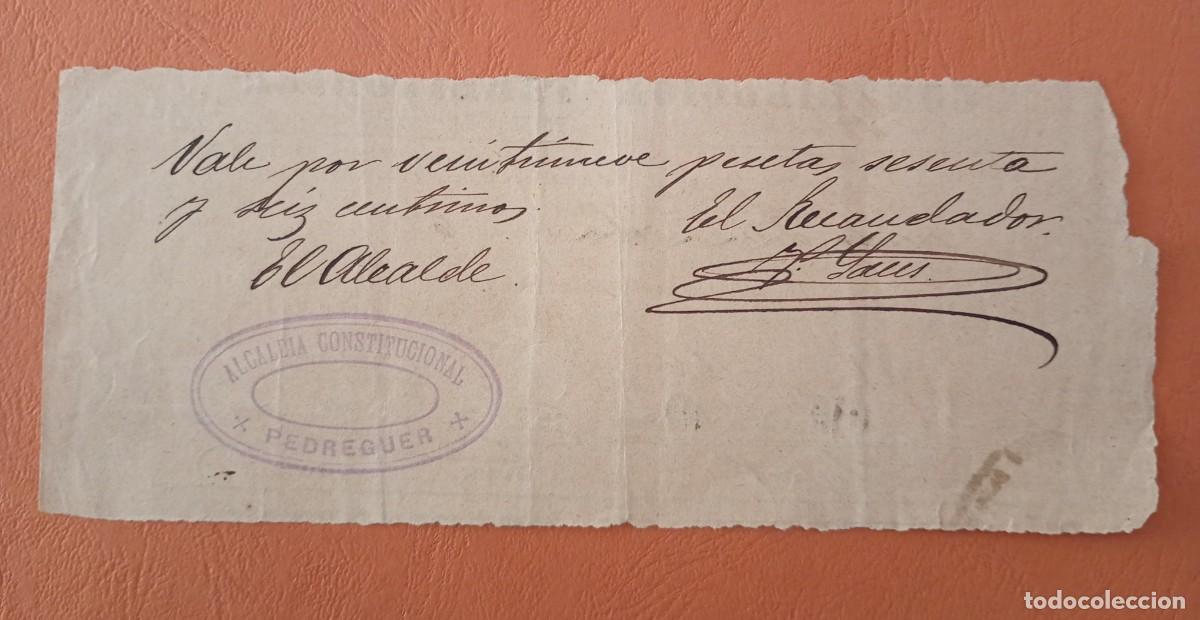 Vale por veintinueve pesetas sesenta
y seiz centimos. El Recaudador.
El Alcalde.
ALCALDIA CONSTITUCIONAL
PEDREGUER
todocoleccion